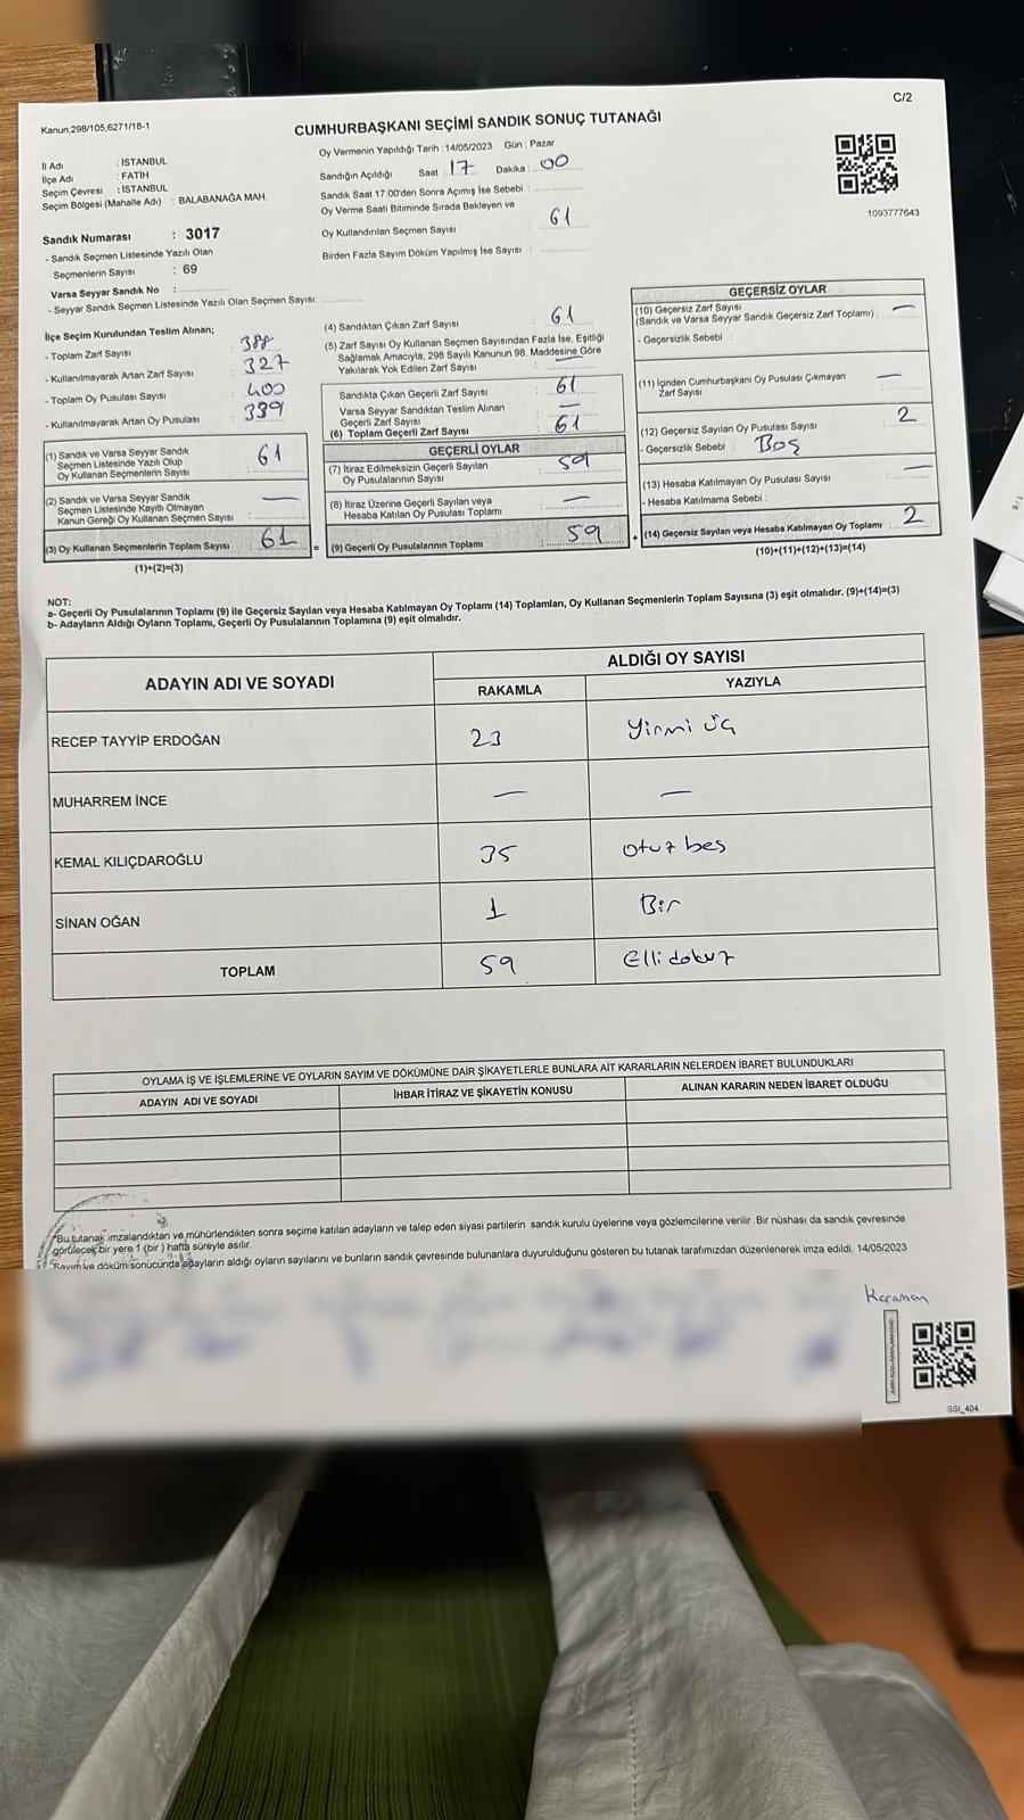 C/2
Kanun;298/105,6271/18-1
CUMHURBAŞKANI SEÇİMİ SANDIK SONUÇ TUTANAĞI
Oy Vermenin Yapıldığı Tarih : 14/05/2023 Gün : Pazar
İl Adı : İSTANBUL
İlçe Adı : FATİH
Seçim Çevresi : İSTANBUL
Seçim Bölgesi (Mahalle Adı) : BALABANAĞA MAH.
Sandığın Açıldığı Saat 17 Dakika : 00
Sandık Saat 17:00'den Sonra Açımış İse Sebebi :
Oy Verme Saati Bitiminde Sırada Bekleyen ve
Oy Kullandırılan Seçmen Sayısı 61
Birden Fazla Sayım Döküm Yapılmış İse Sayısı :
1093777643
Sandık Numarası : 3017
- Sandık Seçmen Listesinde Yazılı Olan
Seçmenlerin Sayısı : 69
Varsa Seyyar Sandık No :
- Seyyar Sandık Seçmen Listesinde Yazılı Olan Seçmen Sayısı:
İlçe Seçim Kurulundan Teslim Alınan;
- Toplam Zarf Sayısı : 388
- Kullanılmayarak Artan Zarf Sayısı : 327
- Toplam Oy Pusulası Sayısı : 400
- Kullanılmayarak Artan Oy Pusulası : 339
(1) Sandık ve Varsa Seyyar Sandık
Seçmen Listesinde Yazılı Olup
Oy Kullanan Seçmenlerin Sayısı 61
(2) Sandık ve Varsa Seyyar Sandık
Seçmen Listesinde Kayıtlı Olmayan
Kanun Gereği Oy Kullanan Seçmen Sayısı —
(3) Oy Kullanan Seçmenlerin Toplam Sayısı 61
(1)+(2)=(3)
(4) Sandıktan Çıkan Zarf Sayısı : 61
(5) Zarf Sayısı Oy Kullanan Seçmen Sayısından Fazla İse, Eşitliği
Sağlamak Amacıyla, 298 Sayılı Kanunun 98. Maddesine Göre
Yakılarak Yok Edilen Zarf Sayısı : —
Sandıkta Çıkan Geçerli Zarf Sayısı 61
Varsa Seyyar Sandıktan Teslim Alınan
Geçerli Zarf Sayısı —
(6) Toplam Geçerli Zarf Sayısı 61
GEÇERLİ OYLAR
(7) İtiraz Edilmeksizin Geçerli Sayılan
Oy Pusulalarının Sayısı 59
(8) İtiraz Üzerine Geçerli Sayılan veya
Hesaba Katılan Oy Pusulası Toplamı —
= (9) Geçerli Oy Pusulalarının Toplamı 59
GEÇERSİZ OYLAR
(10) Geçersiz Zarf Sayısı
(Sandık ve Varsa Seyyar Sandık Geçersiz Zarf Toplamı) —
- Geçersizlik Sebebi :
(11) İçinden Cumhurbaşkanı Oy Pusulası Çıkmayan
Zarf Sayısı —
(12) Geçersiz Sayılan Oy Pusulası Sayısı 2
- Geçersizlik Sebebi : Boş
(13) Hesaba Katılmayan Oy Pusulası Sayısı —
- Hesaba Katılmama Sebebi :
+ (14) Geçersiz Sayılan veya Hesaba Katılmayan Oy Toplamı 2
(10)+(11)+(12)+(13)=(14)
NOT:
a- Geçerli Oy Pusulalarının Toplamı (9) ile Geçersiz Sayılan veya Hesaba Katılmayan Oy Toplamı (14) Toplamları, Oy Kullanan Seçmenlerin Toplam Sayısına (3) eşit olmalıdır. (9)+(14)=(3)
b- Adayların Aldığı Oyların Toplamı, Geçerli Oy Pusulalarının Toplamına (9) eşit olmalıdır.
ADAYIN ADI VE SOYADI ALDIĞI OY SAYISI
RAKAMLA YAZIYLA
RECEP TAYYİP ERDOĞAN 23 Yirmi üç
MUHARREM İNCE — —
KEMAL KILIÇDAROĞLU 35 otuz beş
SİNAN OĞAN 1 Bir
TOPLAM 59 Elli dokuz
OYLAMA İŞ VE İŞLEMLERİNE VE OYLARIN SAYIM VE DÖKÜMÜNE DAİR ŞİKAYETLERLE BUNLARA AİT KARARLARIN NELERDEN İBARET BULUNDUKLARI
ADAYIN ADI VE SOYADI İHBAR İTİRAZ VE ŞİKAYETİN KONUSU ALINAN KARARIN NEDEN İBARET OLDUĞU
*Bu tutanak imzalandıktan ve mühürlendikten sonra seçime katılan adayların ve talep eden siyasi partilerin sandık kurulu üyelerine veya gözlemcilerine verilir. Bir nüshası da sandık çevresinde
görülecek bir yere 1 (bir) hafta süreyle asılır.
*Sayım ve döküm sonucunda adayların aldığı oyların sayılarını ve bunların sandık çevresinde bulunanlara duyurulduğunu gösteren bu tutanak tarafımızdan düzenlenerek imza edildi. 14/05/2023
SSI_404